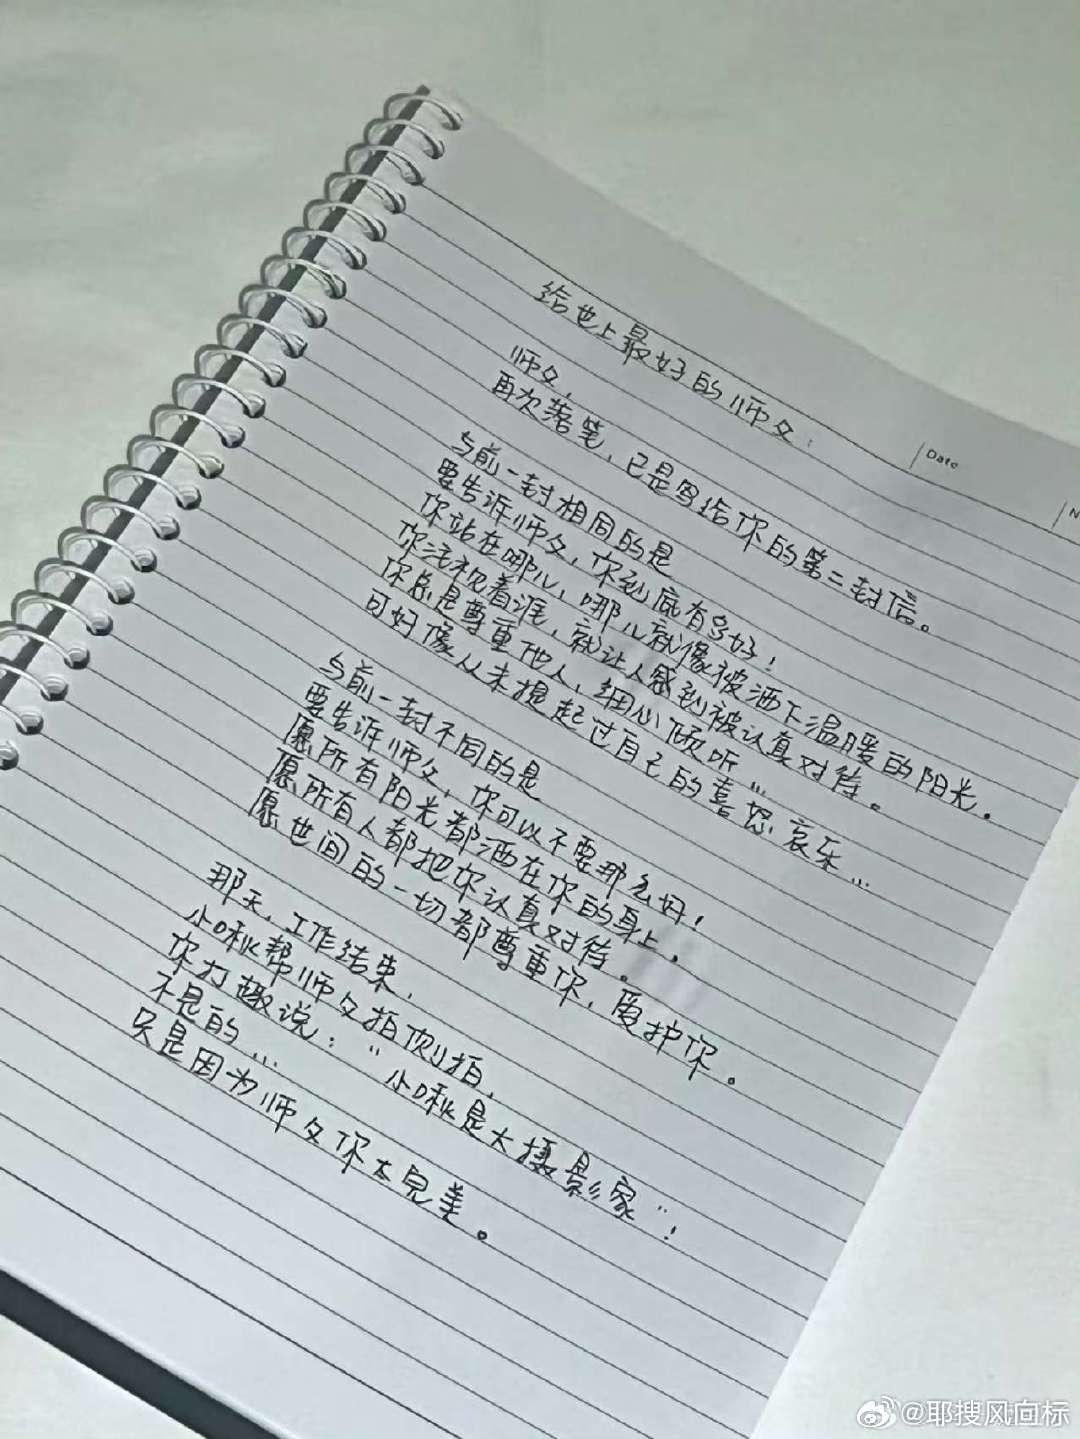 Date
N
给世上最好的师父：
师父，
再次落笔，已是写给你的第二封信。
与前一封相同的是
要告诉师父，你到底有多好！
你站在哪儿，哪儿就像被洒下温暖的阳光，
你注视着谁，就让人感到被认真对待。
你总是尊重他人，细心倾听…
可好像从未提起过自己的喜怒哀乐…
与前一封不同的是
要告诉师父，你可以不要那么好！
愿所有阳光都洒在你的身上，
愿所有人都把你认真对待。
愿世间的一切都尊重你，爱护你。
那天，工作结束，
小啾帮师父拍侧拍，
你打趣说：“小啾是大摄影家”！
不是的…
只是因为师父你太完美。
@耶搜风向标